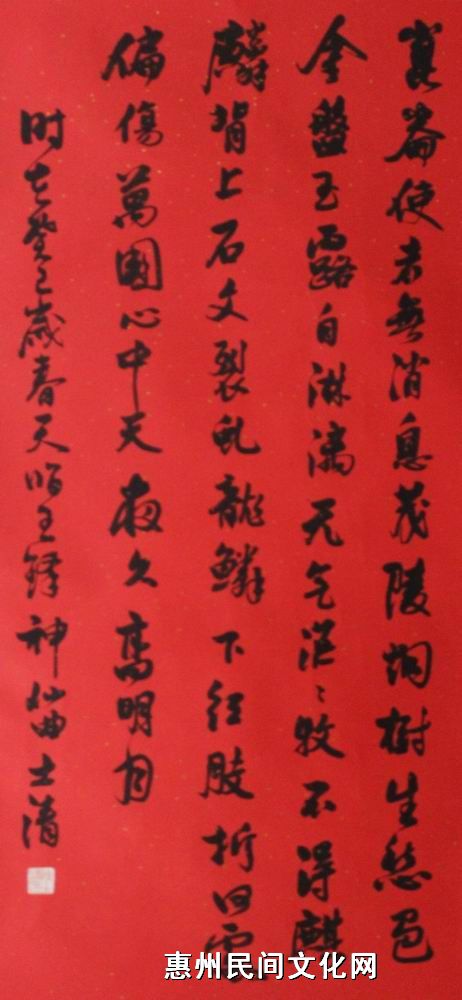 崑崙使者無消息茂陵烟樹生愁色
金盤玉露自淋漓元气茫〻收不得麒
麟背上石文裂虬龍鱗下紅肢折何處
偏傷萬國心中天夜久高明月
时在癸巳歲春天临王鐸神仙曲士清
惠州民间文化网